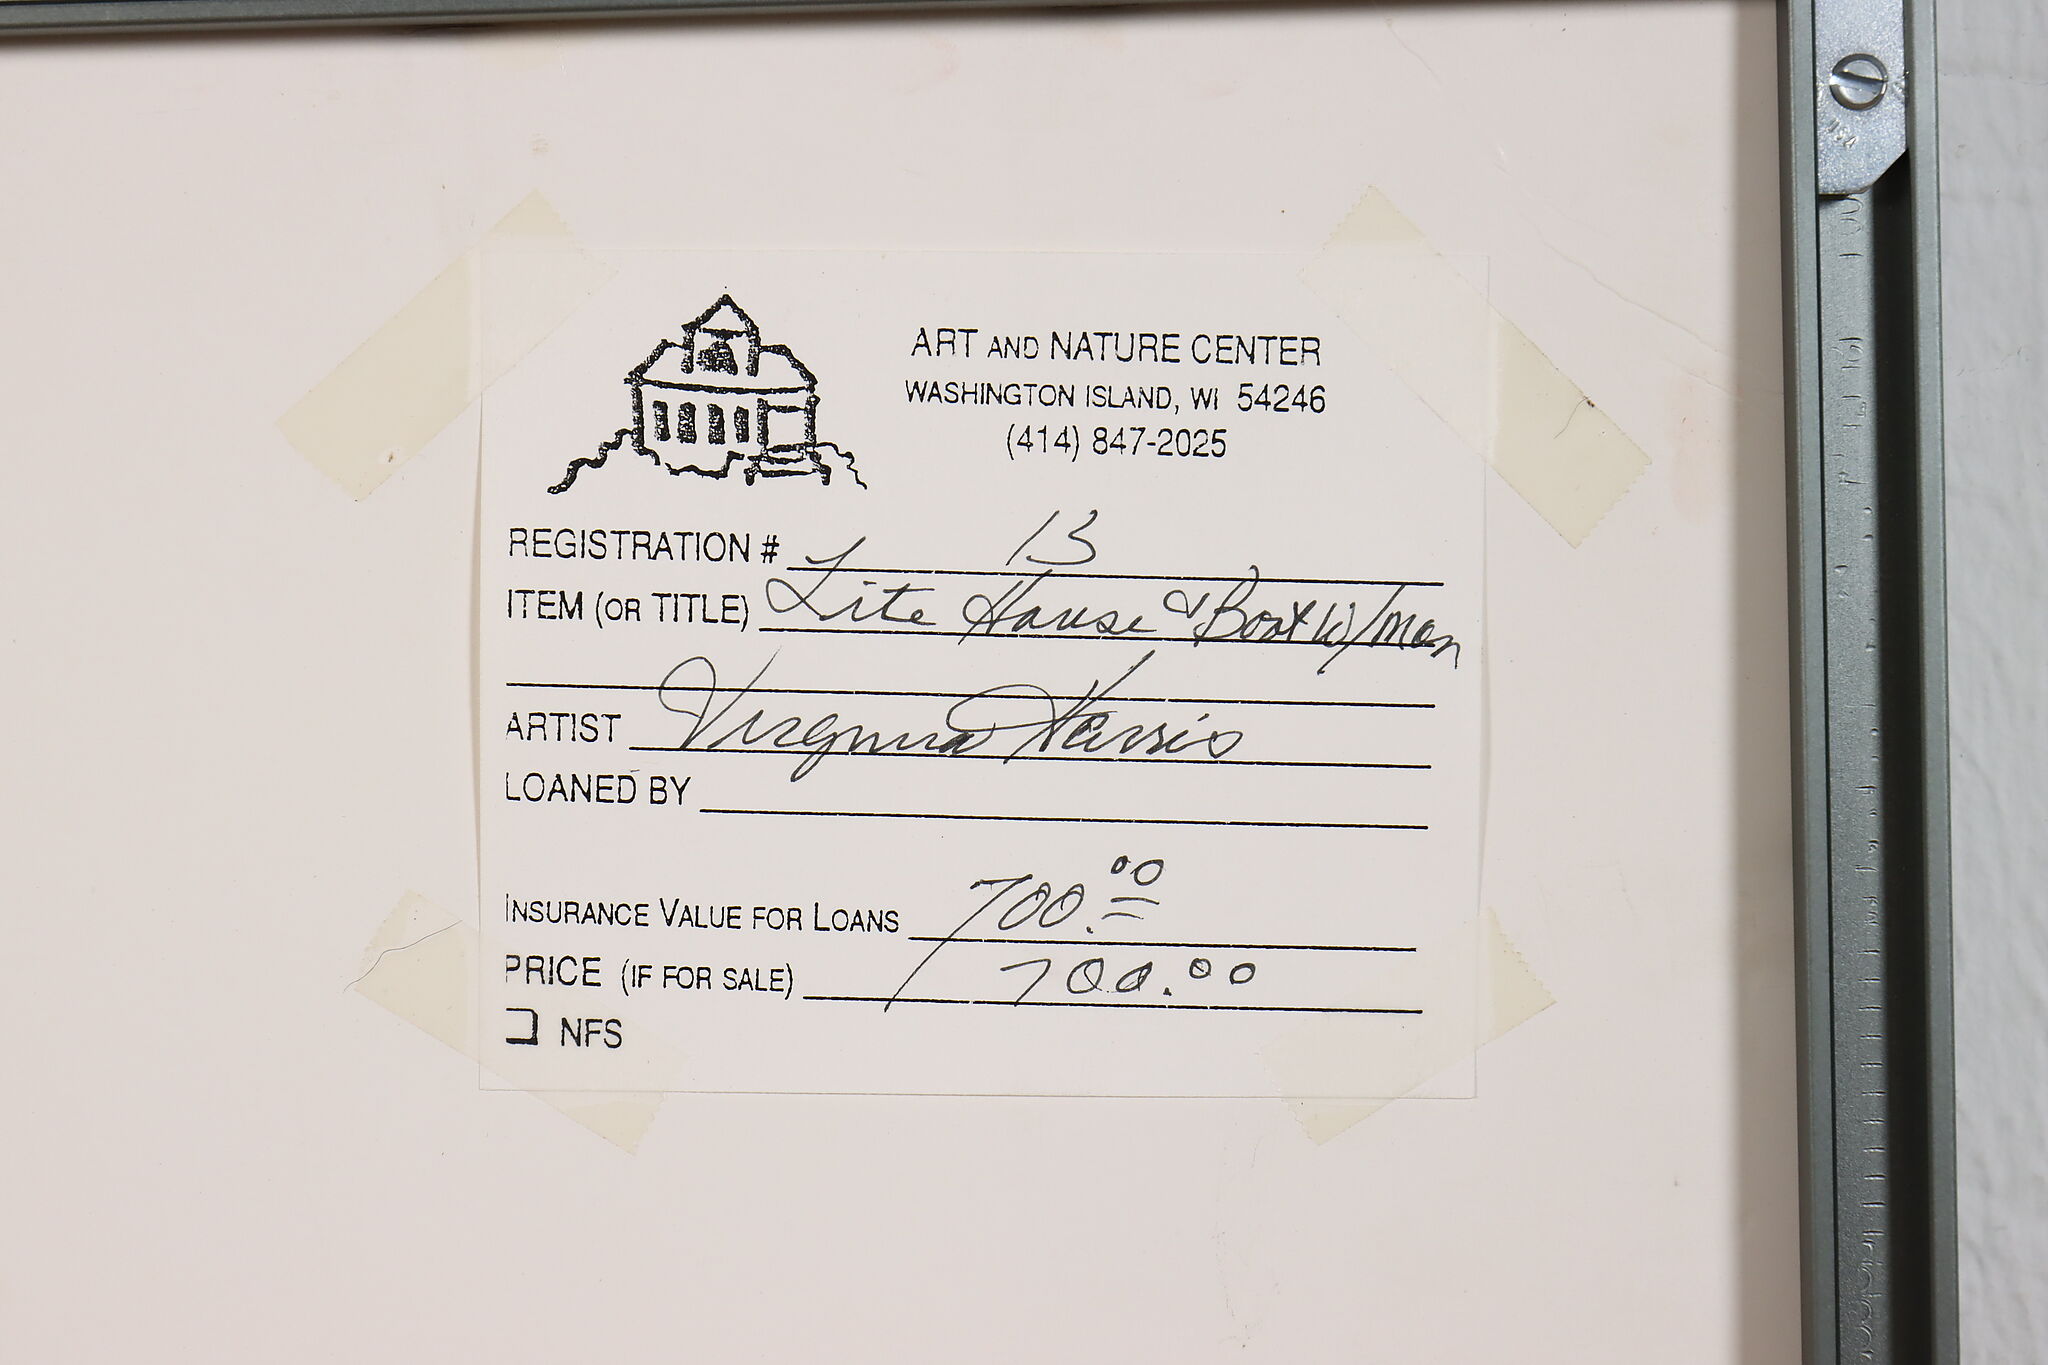 ART AND NATURE CENTER
WASHINGTON ISLAND, WI 54246
(414) 847-2025
REGISTRATION # 13
ITEM (OR TITLE) Lite House & Boat w/man
ARTIST Virginia Harris
LOANED BY
INSURANCE VALUE FOR LOANS 700.00
PRICE (IF FOR SALE) 700.00
NFS